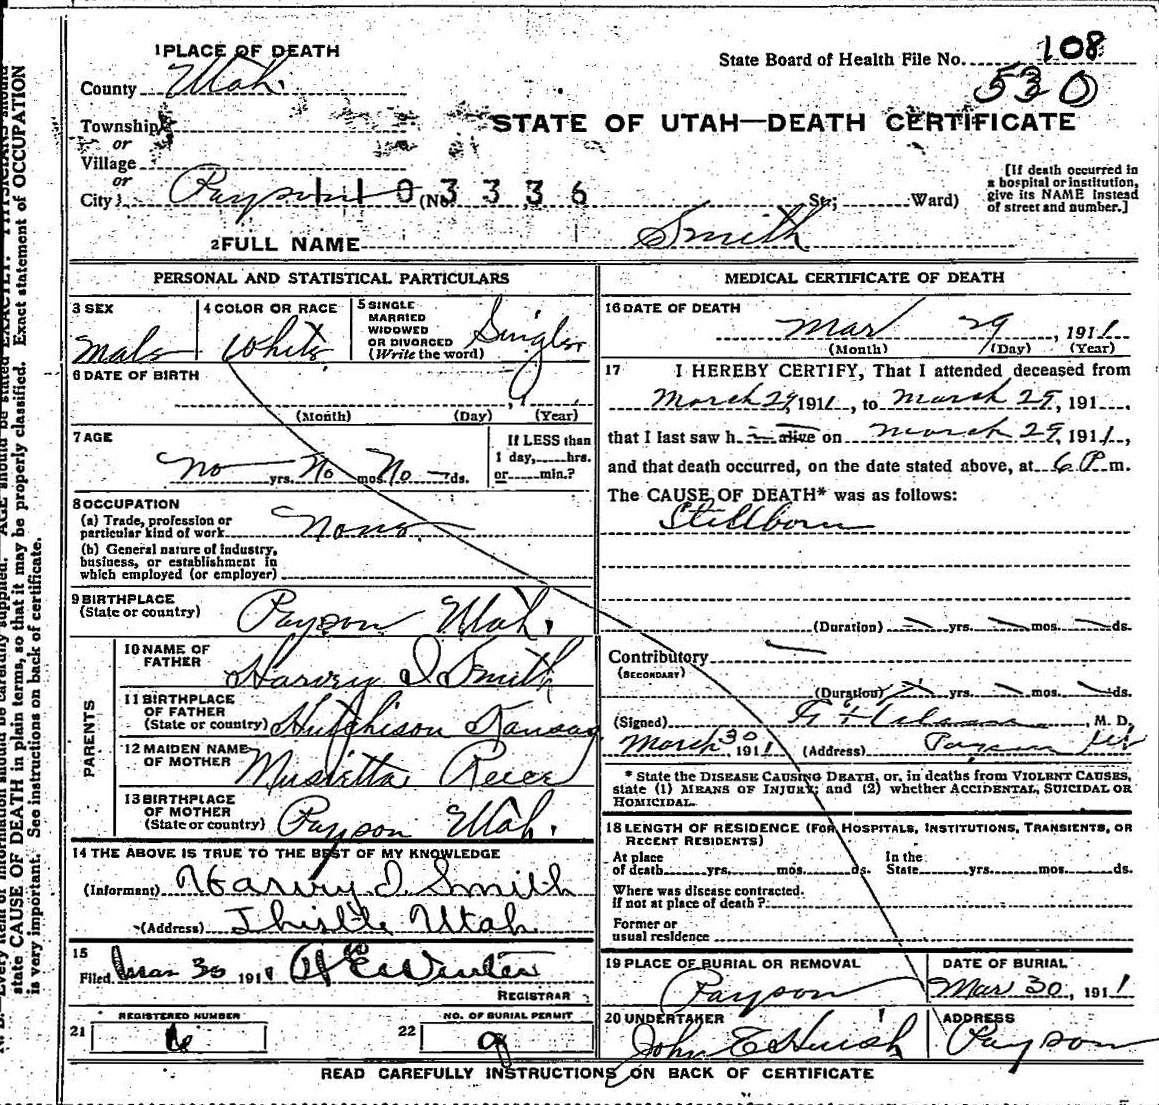 1 PLACE OF DEATH
County Utah.
Township
or
Village
or
City Payson (No.
1103336
St; Ward)
State Board of Health File No. 108
530
STATE OF UTAH—DEATH CERTIFICATE
[If death occurred in
a hospital or institution,
give its NAME instead
of street and number.]
2 FULL NAME Smith
PERSONAL AND STATISTICAL PARTICULARS
3 SEX
Male
4 COLOR OR RACE
White
5 SINGLE
MARRIED
WIDOWED
OR DIVORCED
(Write the word)
Single
6 DATE OF BIRTH
(Month) (Day) (Year)
, 9
7 AGE
No yrs. No mos. No ds.
If LESS than
1 day, hrs.
or min.?
8 OCCUPATION
(a) Trade, profession or
particular kind of work None.
(b) General nature of industry,
business, or establishment in
which employed (or employer)
9 BIRTHPLACE
(State or country) Payson Utah.
PARENTS
10 NAME OF
FATHER Harvey I Smith
11 BIRTHPLACE
OF FATHER
(State or country) Hutchison Kansas
12 MAIDEN NAME
OF MOTHER
13 BIRTHPLACE
OF MOTHER
(State or country) Payson Utah.
14 THE ABOVE IS TRUE TO THE BEST OF MY KNOWLEDGE
(Informant) Harvey I. Smith
(Address) Thistle Utah
15
Filed Mar 30 1911
REGISTRAR
21 REGISTERED NUMBER
6
22 NO. OF BURIAL PERMIT
MEDICAL CERTIFICATE OF DEATH
16 DATE OF DEATH
Mar 29, 1911
(Month) (Day) (Year)
17 I HEREBY CERTIFY, That I attended deceased from
March 29, 1911, to March 29, 191
that I last saw h alive on March 29, 1911,
and that death occurred, on the date stated above, at 6 P. m.
The CAUSE OF DEATH* was as follows:
Stillborn
(Duration) yrs. mos. ds.
Contributory
(SECONDARY)
(Duration) yrs. mos. ds.
(Signed) , M. D.
March 30 1911 (Address) Payson Ut
* State the DISEASE CAUSING DEATH, or, in deaths from VIOLENT CAUSES,
state (1) MEANS OF INJURY; and (2) whether ACCIDENTAL, SUICIDAL OR
HOMICIDAL.
18 LENGTH OF RESIDENCE (FOR HOSPITALS, INSTITUTIONS, TRANSIENTS, OR
RECENT RESIDENTS)
At place
of death yrs. mos. ds.
In the
State yrs. mos. ds.
Where was disease contracted.
if not at place of death?
Former or
usual residence
19 PLACE OF BURIAL OR REMOVAL
Payson
DATE OF BURIAL
Mar 30, 1911
20 UNDERTAKER
John E Huish
ADDRESS
Payson
READ CAREFULLY INSTRUCTIONS ON BACK OF CERTIFICATE
state CAUSE OF DEATH in plain terms, so that it may be properly classified. Exact statement of OCCUPATION
is very important. See instructions on back of certificate.